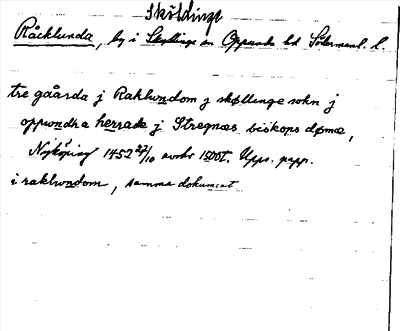 Sköldinge
Råcklunda, by i Skyllinge sn Oppunda hd Södermanl. l.
tre gaårda j Raklwndom j skøllinge sokn j
oppwndra herrade j Stregnæs biskops døme,
Nyköping 1452 27/10 avskr 1500t. Upps. papp.
i raklwndom, samma dokument